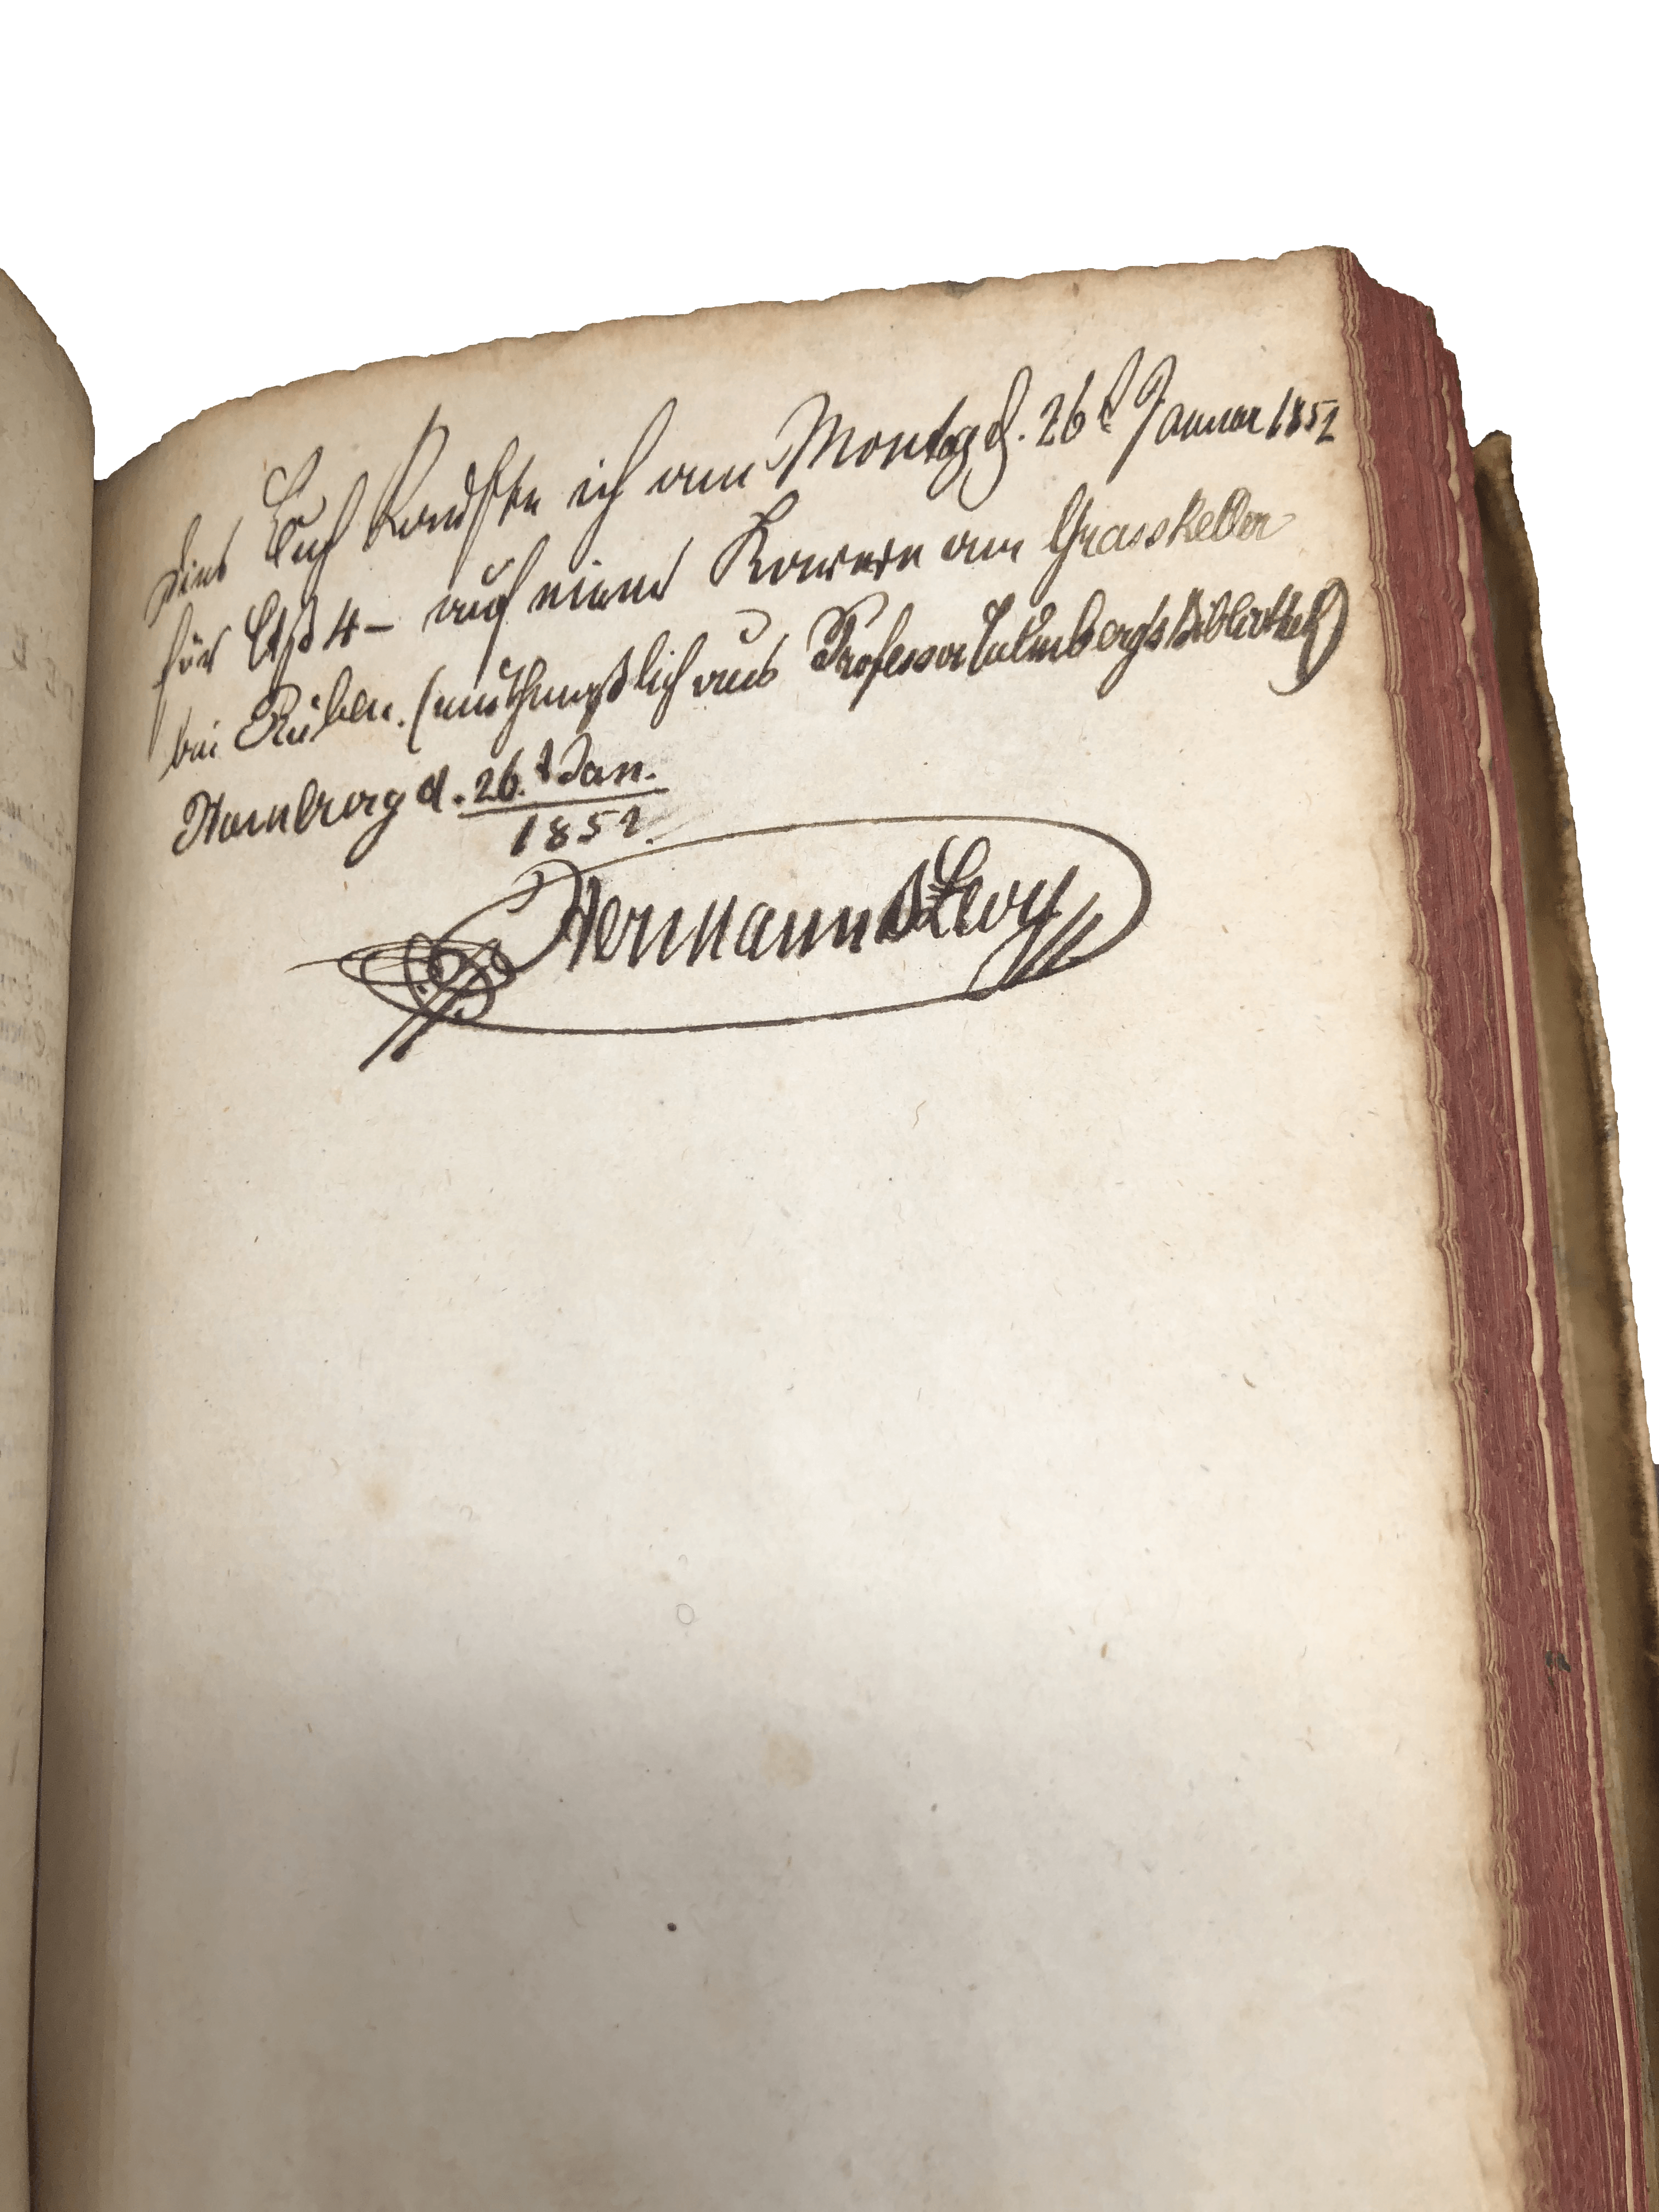 Dies Buch kaufte ich am Montag d. 26t Januar 1852
für 4 – auf einem am Grasskeller
bei Ruben. (muthmaßlich aus Professor Bibliothek)
Hamburg d. 26.t Jan.
1852.
Hermann Levy